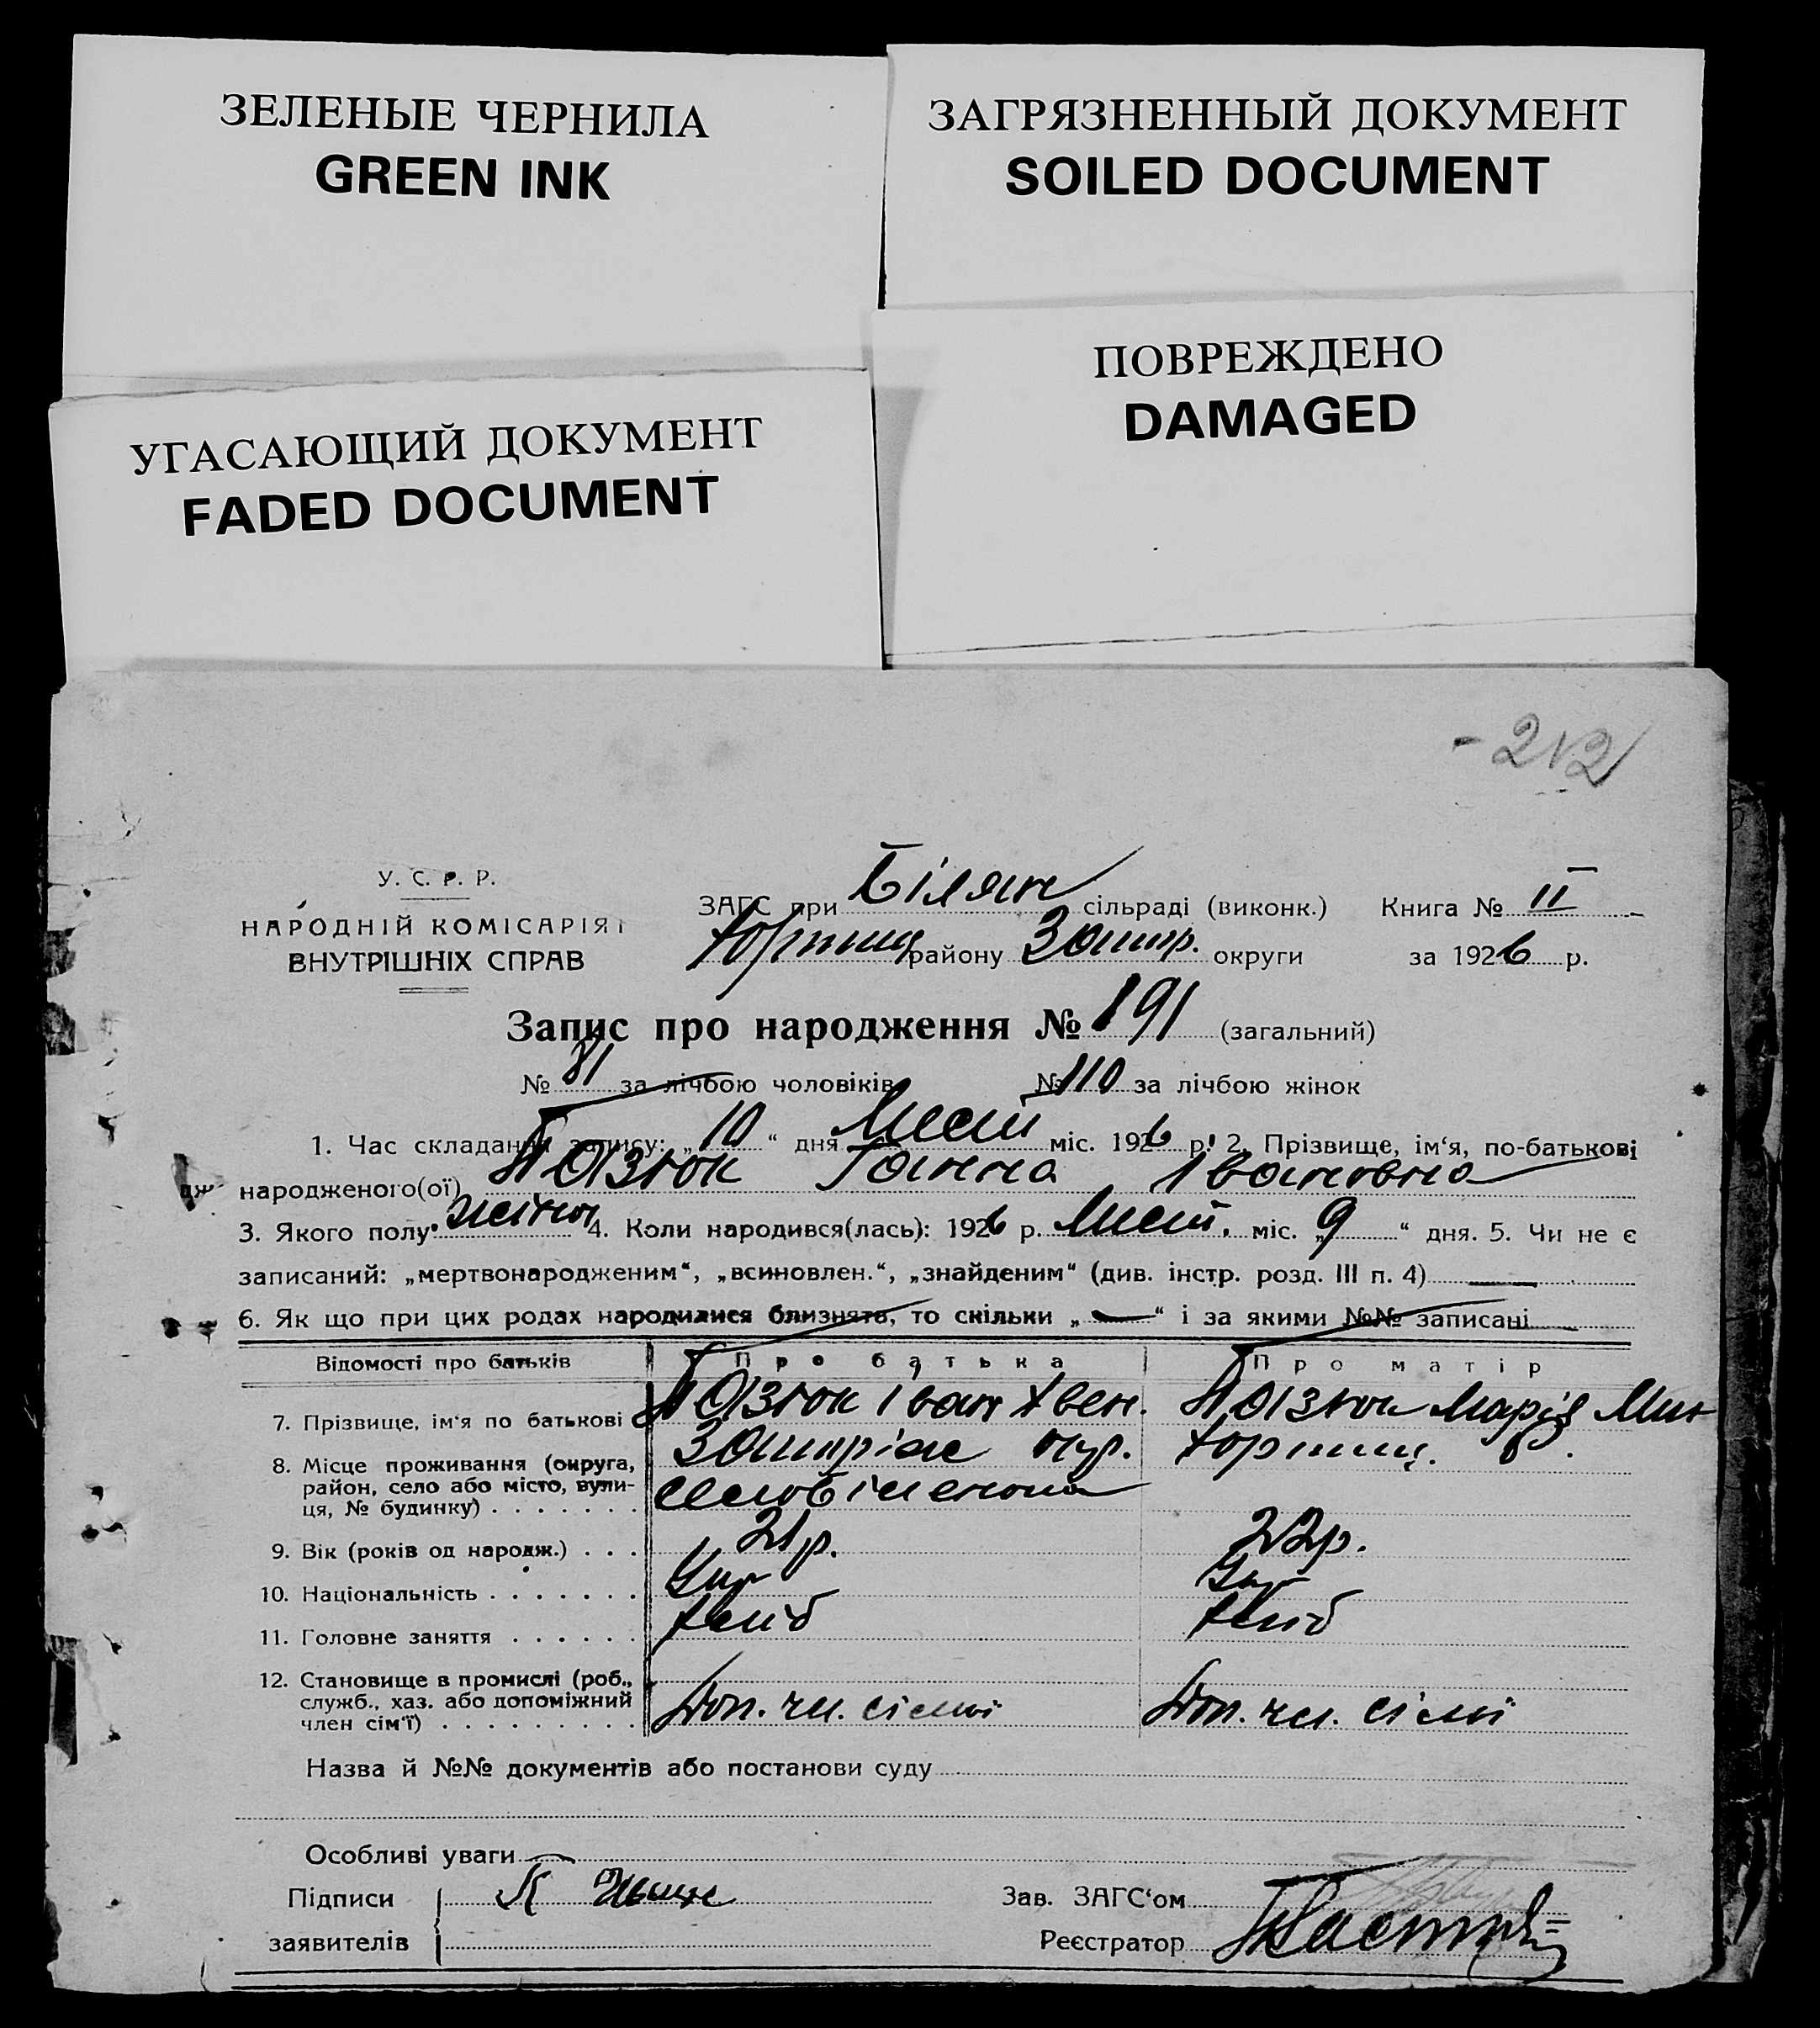 ЗЕЛЕНЫЕ ЧЕРНИЛА
GREEN INK
ЗАГРЯЗНЕННЫЙ ДОКУМЕНТ
SOILED DOCUMENT
ПОВРЕЖДЕНО
DAMAGED
УГАСАЮЩИЙ ДОКУМЕНТ
FADED DOCUMENT
- 212
У. С. Р. Р.
НАРОДНІЙ КОМІСАРІЯТ
ВНУТРІШНІХ СПРАВ
ЗАГС при Білян сільраді (виконк.) Книга № II
району округи за 1926 р.
Запис про народження № 191 (загальний)
№ 81 за лічбою чоловіків № 110 за лічбою жінок
1. Час складання запису: „10“ дня Лист міс. 1926 р. 2. Прізвище, ім‘я, по-батькові
народженого(ої) Ганна Івановна
3. Якого полу 4. Коли народився(лась): 1926 р. Лист. міс. „9“ дня. 5. Чи не є
записаний: „мертвонародженим“, „всиновлен.“, „знайденим“ (див. інстр. розд. III п. 4) —
6. Як що при цих родах народилися близнята, то скільки „—“ і за якими №№ записані
Відомості про батьків Про батька Про матір
7. Прізвище, ім‘я по батькові Іван Марія
8. Місце проживання (округа,
район, село або місто, вули-
ця, № будинку)
окр.
9. Вік (років од народж.) 21 р. 22 р.
10. Національність Укр Укр
11. Головне заняття хліб хліб
12. Становище в промислі (роб.,
служб., хаз. або допоміжний
член сім‘ї) Доп. чл. сімї Доп. чл. сімї
Назва й №№ документів або постанови суду
Особливі уваги
Підписи
заявителів
Зав. ЗАГС‘ом
Реєстратор